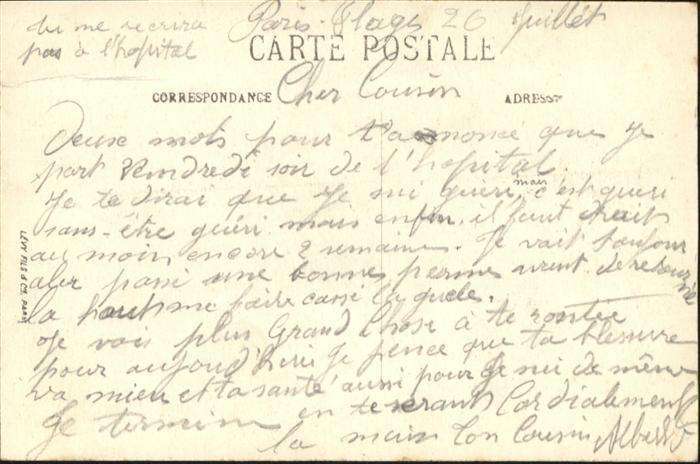 tu me recrira
pas à l'hopital
Paris-Plage 26 Juillet
CARTE POSTALE
CORRESPONDANCE
ADRESSE
Cher Cousin
Deux mots pour t'anonce que je
part Vendredi soir de l'hopital
Je te dirai que je sui guéri mais c'est guéri
sans-être guéri mais enfin il faut
au moin encore 2 semaine. Je vait toujour
aler passé une bonnes perme avant de retourné
la haut me faire cassé la guele.
Je vois plus Grand Chose à te
pour aujourd'hui je pence que ta blessure
va mieu et ta santé aussi pour de même
Je termine en te serant Cordialement
la main Ton Cousin Albert
LÉVY FILS & Cie PARIS